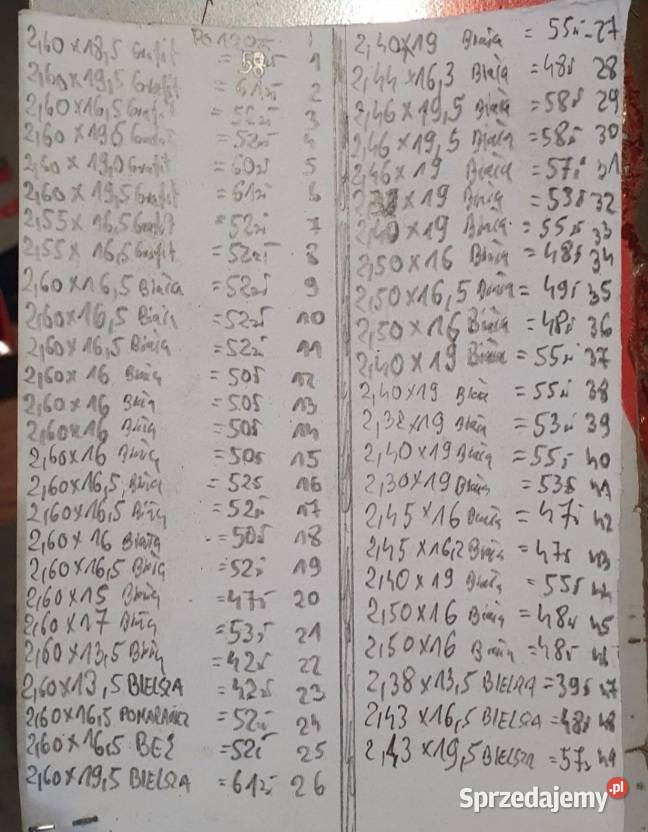 PO 120
2,60 x 18,5 Grafit = 58zł 1
2,60 x 19,5 Grafit = 61zł 2
2,60 x 16,5 Grafit = 52zł 3
2,60 x 19,5 Grafit = 52zł 4
2,60 x 19,0 Grafit = 60zł 5
2,60 x 19,5 Grafit = 61zł 6
2,55 x 16,5 Grafit = 52zł 7
2,55 x 16,5 Grafit = 52zł 8
2,60 x 16,5 Biała = 52zł 9
2,60 x 16,5 Biała = 52zł 10
2,60 x 16,5 Biała = 52zł 11
2,60 x 16 Biała = 50zł 12
2,60 x 16 Biała = 50zł 13
2,60 x 16 Biała = 50zł 14
2,60 x 16 Biała = 50zł 15
2,60 x 16,5 Biała = 52zł 16
2,60 x 16,5 Biała = 52zł 17
2,60 x 16 Biała = 50zł 18
2,60 x 16,5 Biała = 52zł 19
2,60 x 15 Biała = 47zł 20
2,60 x 17 Biała = 53zł 21
2,60 x 13,5 Biała = 42zł 22
2,60 x 13,5 BIELSZA = 42zł 23
2,60 x 16,5 POMARAŃCZ = 52zł 24
2,60 x 16,5 BEŻ = 52zł 25
2,60 x 19,5 BIELSZA = 61zł 26
2,40 x 19 Biała = 55zł 27
2,44 x 16,3 Biała = 48zł 28
2,46 x 19,5 Biała = 58zł 29
2,46 x 19,5 Biała = 58zł 30
2,46 x 19 Biała = 57zł 31
x 19 Biała = 53zł 32
2,40 x 19 Biała = 55zł 33
2,50 x 16 Biała = 48zł 34
2,50 x 16,5 Biała = 49zł 35
2,50 x 16 Biała = 48zł 36
2,40 x 19 Biała = 55zł 37
2,40 x 19 Biała = 55zł 38
2,38 x 19 Biała = 53zł 39
2,40 x 19 Biała = 55zł 40
2,30 x 19 Biała = 53zł 41
2,45 x 16 Biała = 47zł 42
2,45 x 16,2 Biała = 47zł 43
2,40 x 19 Biała = 55zł 44
2,50 x 16 Biała = 48zł 45
2,50 x 16 Biała = 48zł 46
2,38 x 13,5 BIELSZA = 39zł 47
2,43 x 16,5 BIELSZA = 48zł 48
2,43 x 19,5 BIELSZA = 57zł 49
Sprzedajemy.pl